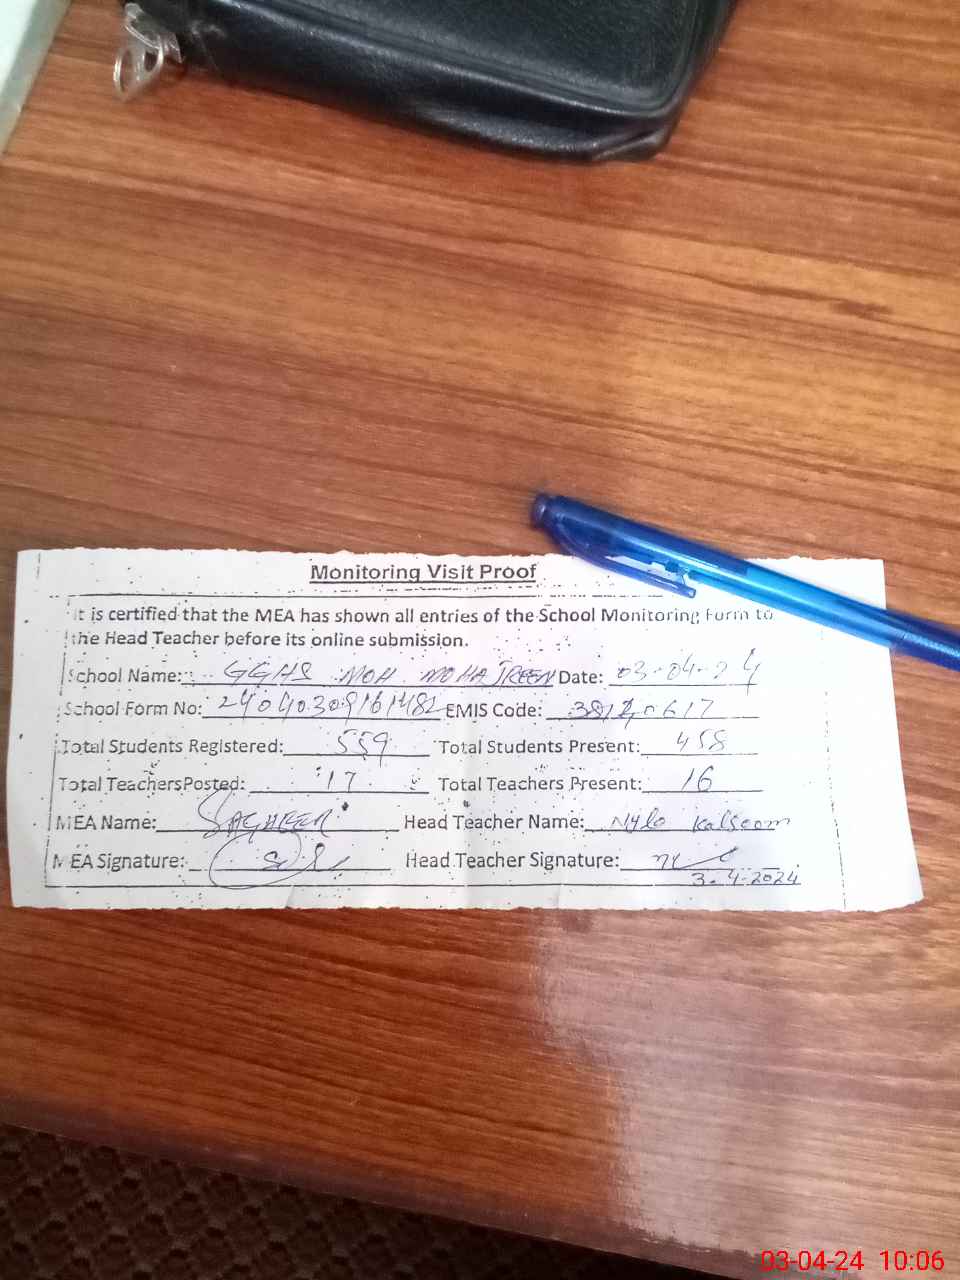 Monitoring Visit Proof
It is certified that the MEA has shown all entries of the School Monitoring Form to
the Head Teacher before its online submission.
School Name: GGHS MOH MOHAJREEN Date: 03-04-24
School Form No: EMIS Code:
Total Students Registered: 559 Total Students Present: 458
Total TeachersPosted: 17 Total Teachers Present: 16
MEA Name: SAGHEER Head Teacher Name: Kalsoom
MEA Signature: Head Teacher Signature:
3-4-2024
03-04-24 10:06